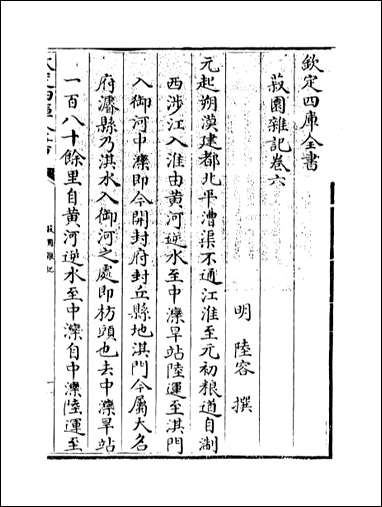 欽定四庫全書
菽園雜記卷六
明 陸容 撰
元起朔漠建都北平漕渠不通江淮至元初粮道自淛
西涉江入淮由黄河逆水至中灤旱站陸運至淇門
入御河中灤即今開封府封丘縣地淇門今屬大名
府濬縣乃淇水入御河之處即枋頭也去中灤旱站
一百八十餘里自黄河逆水至中灤自中灤陸運至
菽園雜記